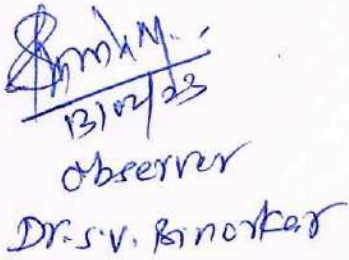 13/02/23
observer
Dr. S. V. Binorkar